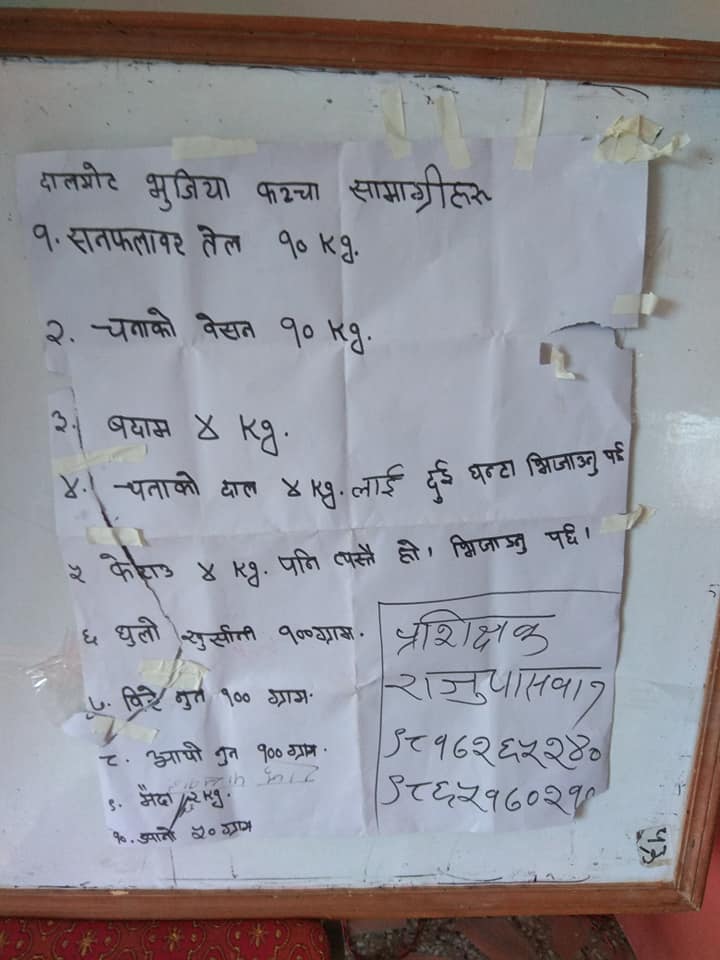 दालमोट भुजिया कच्चा सामाग्रीहरू
१. सनफलावर तेल १० Kg.
२. चनाको वेसन १० Kg.
३. बदाम ४ Kg.
४. चनाको दाल ४ Kg. लाई दुई घन्टा भिजाउनु पर्छ
५ केराउ ४ Kg. पनि त्यस्तै हो। भिजाउनु पर्छ।
६ धुलो खुर्सानी १०० ग्राम.
७. विरे नुन १०० ग्राम.
८. आयो नुन १०० ग्राम.
९. मैदा २ Kg.
१०. ज्वानो ५० ग्राम
प्रशिक्षक
राजु पासवान
९८१६२६५२४०
९८६५१६०२१०